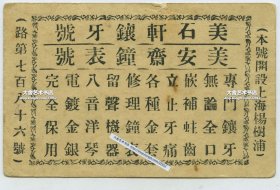 （本號開設上海楊樹浦
美石軒鑲牙號
美安齋鐘表號
專門鑲牙
無論全口
嵌補蛀齒
立止牙痛
各種金套
修理鐘表
留聲機器
八音洋琴
電鍍金銀
完全保用
路第七百八十六號）